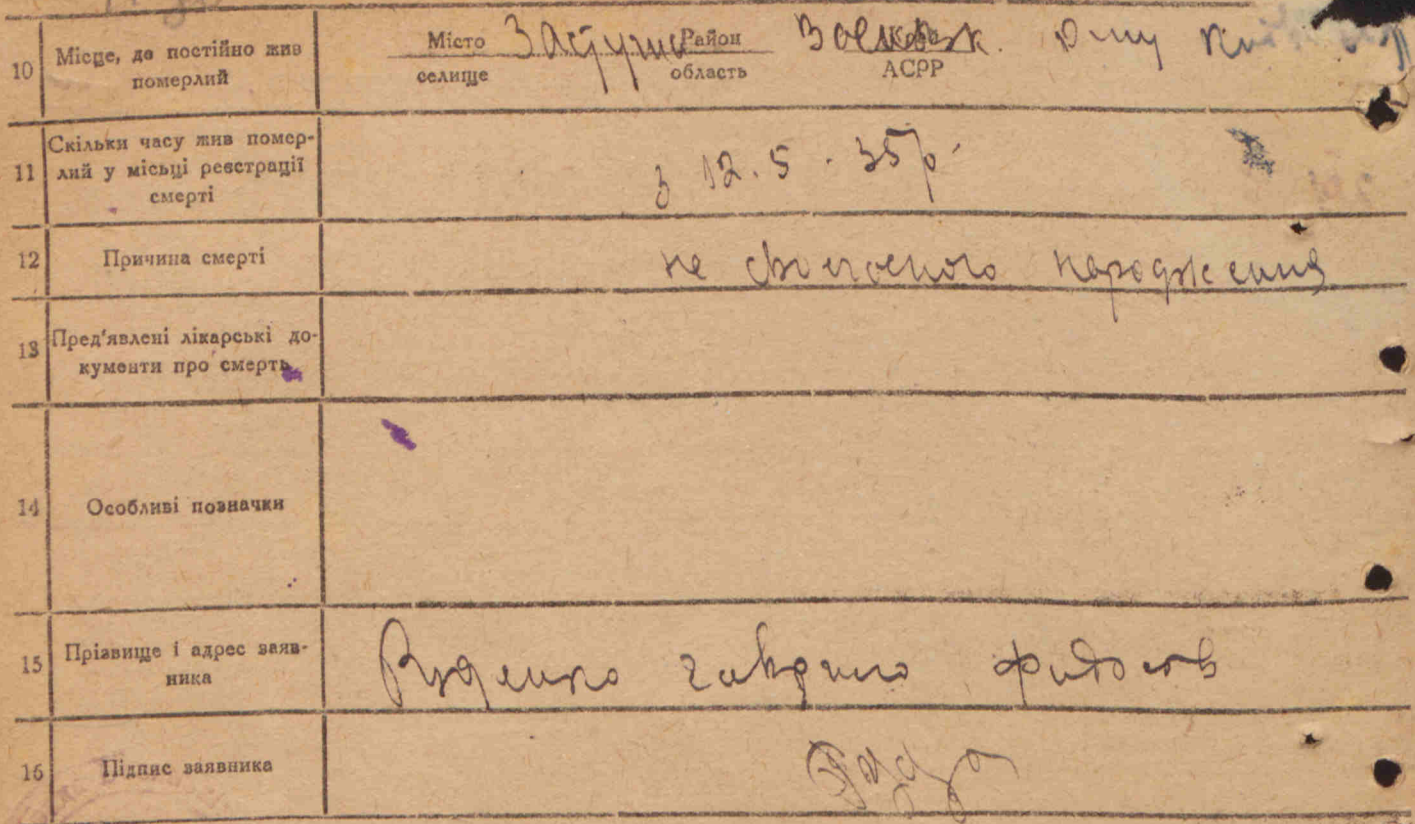 10 Місце, де постійно жив
померлий
Місто Район
селище область АСРР
11 Скільки часу жив помер-
лий у місьці реєстрації
смерті
з 12.5.35р.
12 Причина смерті
не своєчасного народження
13 Пред'явлені лікарські до-
кументи про смерть
14 Особливі позначки
15 Прізвище і адрес заяв-
ника
Руденко Гаврило
16 Підпис заявника